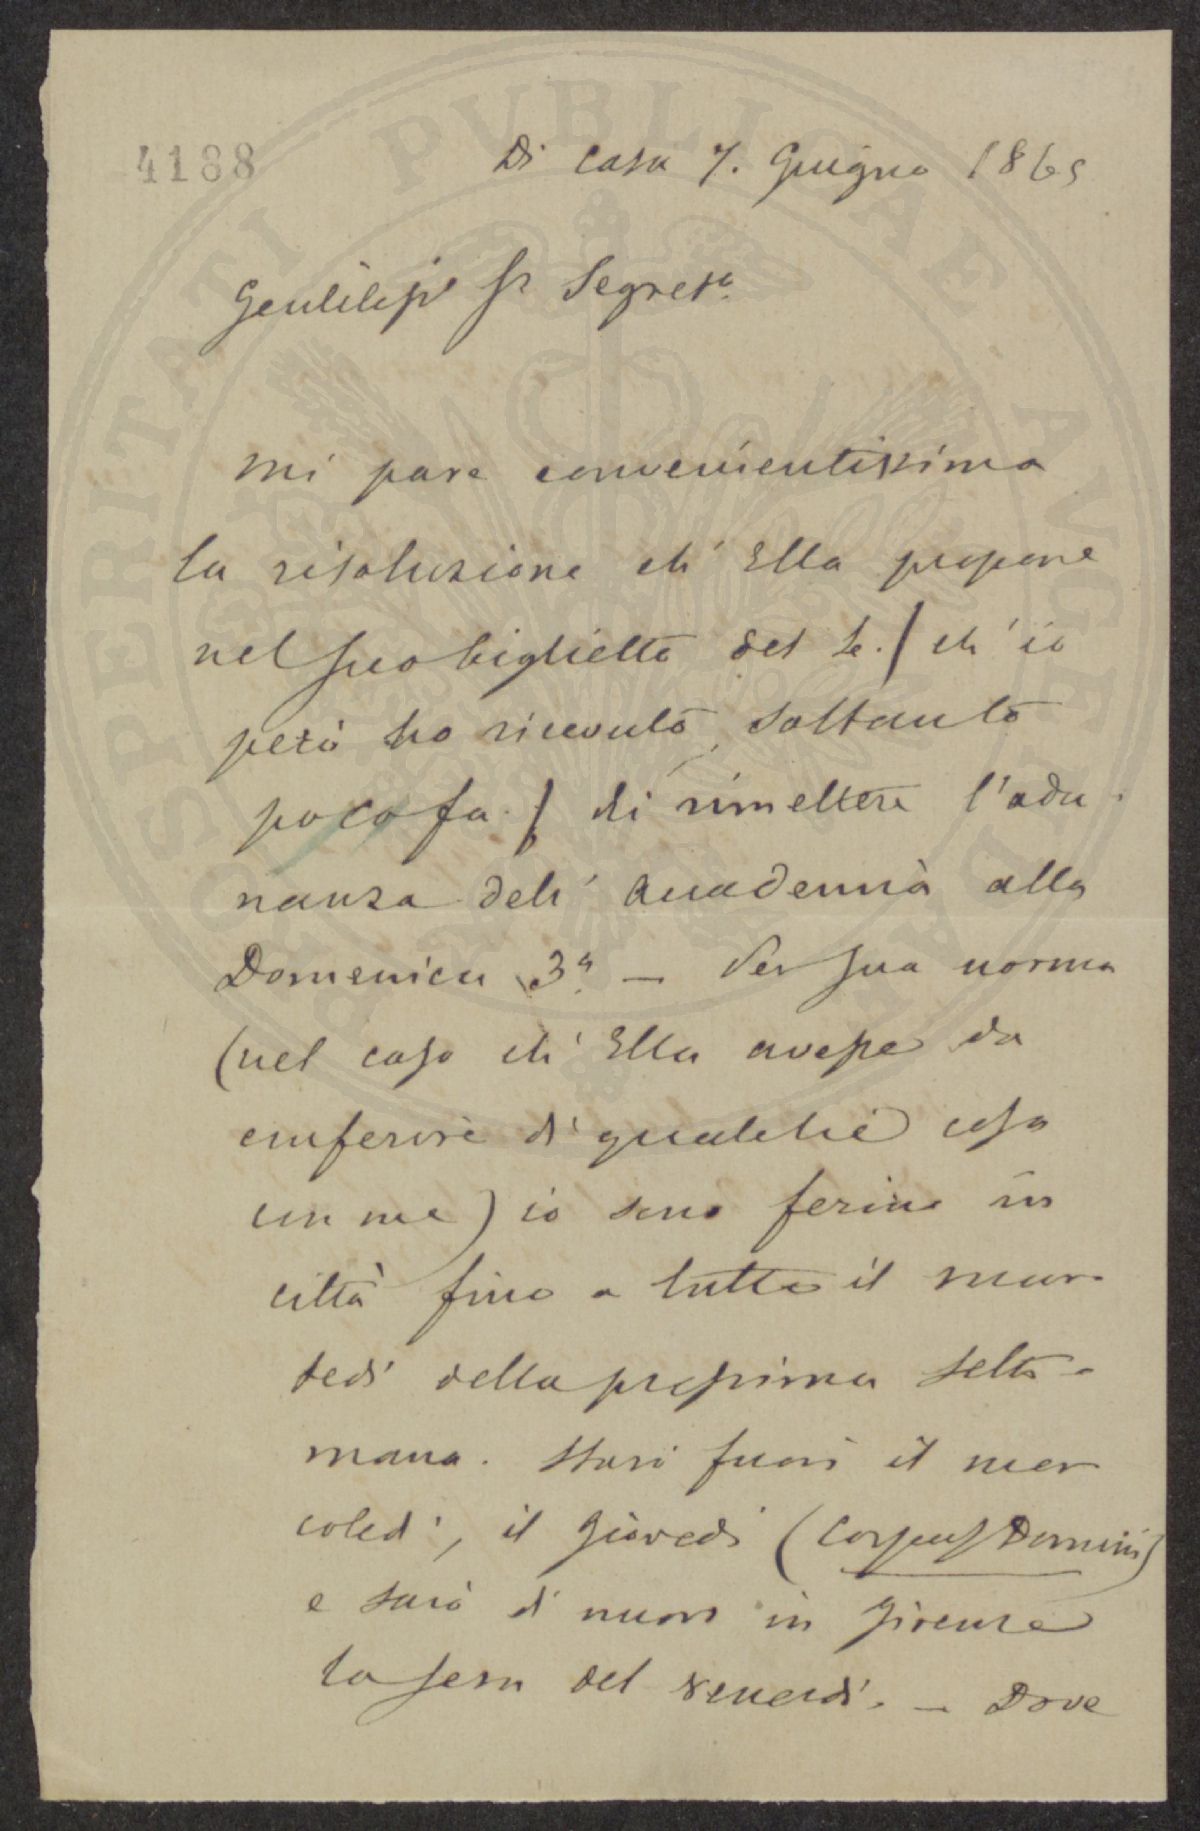 PROSPERITATI PUBLICAE AUGENDAE
4188
Di casa 7. Giugno 1865
Gentiliss.º Sr Segret.º
Mi pare convenientissima
la risoluzione ch' Ella propone
nel suo biglietto del 6. / ch' io
però ho ricevuto soltanto
poco fa. / di rimettere l'adu-
nanza dell' Accademia alla
Domenica 3ª. — Per sua norma
(nel caso ch' Ella avesse da
conferire di qualche cosa
con me) io sono fermo in
città fino a tutto il mar-
tedì della prossima setti-
mana. Starò fuori il mer-
coledì, il Giovedì (Corpus Domini)
e sarò di nuovo in Firenze
la sera del venerdì. — Dove